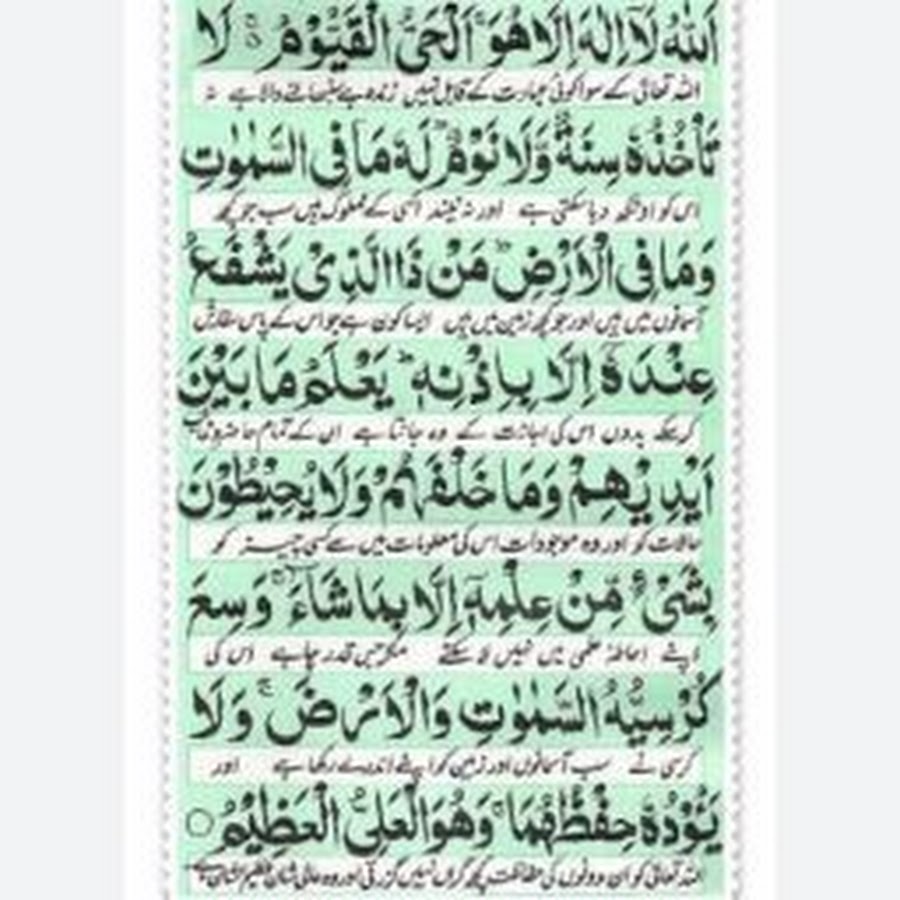 اَللّٰهُ لَآ اِلٰهَ اِلَّا هُوَ ۚ اَلْحَیُّ الْقَیُّوْمُ ۚ لَا
اللہ تعالیٰ کے سوا کوئی عبادت کے قابل نہیں زندہ ہے سنبھالنے والا ہے نہ
تَاْخُذُهٗ سِنَةٌ وَّلَا نَوْمٌ ؕ لَهٗ مَا فِی السَّمٰوٰتِ
اس کو اونگھ دبا سکتی ہے اور نہ نیند اسی کے مملوک ہیں سب جو کچھ
وَمَا فِی الْاَرْضِ ؕ مَنْ ذَا الَّذِیْ یَشْفَعُ
آسمانوں میں ہیں اور جو کچھ زمین میں ہیں ایسا کون ہے جو اس کے پاس سفارش
عِنْدَهٗٓ اِلَّا بِاِذْنِهٖ ؕ یَعْلَمُ مَا بَیْنَ
کر سکے بدوں اس کی اجازت کے وہ جانتا ہے ان کے تمام حاضر و غائب
اَیْدِیْهِمْ وَمَا خَلْفَهُمْ وَلَا یُحِیْطُوْنَ
حالات کو اور وہ موجودات اس کی معلومات میں سے کسی چیز کو
بِشَیْءٍ مِّنْ عِلْمِهٖٓ اِلَّا بِمَا شَآءَ ۚ وَسِعَ
اپنے احاطۂ علمی میں نہیں لا سکتے مگر جس قدر چاہے اس کی
كُرْسِیُّهُ السَّمٰوٰتِ وَالْاَرْضَ ۚ وَلَا
کرسی نے سب آسمانوں اور زمین کو اپنے اندر لے رکھا ہے اور
یَـُٔوْدُهٗ حِفْظُهُمَا ۚ وَهُوَ الْعَلِیُّ الْعَظِیْمُ ○
اللہ تعالیٰ کو ان دونوں کی حفاظت کچھ گراں نہیں گزرتی اور وہ عالی شان عظیم الشان ہے